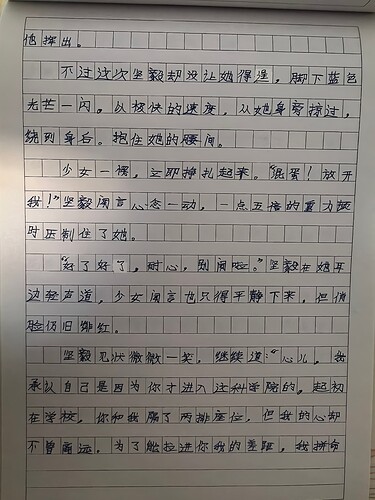 他挥出。
不过这次坚毅却没让她得逞，脚下蓝色
光芒一闪。以极快的速度，从她身旁掠过，
绕到身后。抱住她的腰间。
少女一愣，立即挣扎起来。“混蛋！放开
我！”坚毅闻言心念一动，一点五倍的重力顿
时压制住了她。
“好了好了，耐心，别闹啦。”坚毅在她耳
边轻声道，少女闻言也只得平静下来，但俏
脸仍旧绯红。
坚毅见状微微一笑，继续道：“心儿，我
承认自己是因为你才进入这科学院的。起初
在学校，你和我隔了两排座位，但我的心却
不曾甭远。为了能拉进你我的差距，我拼命